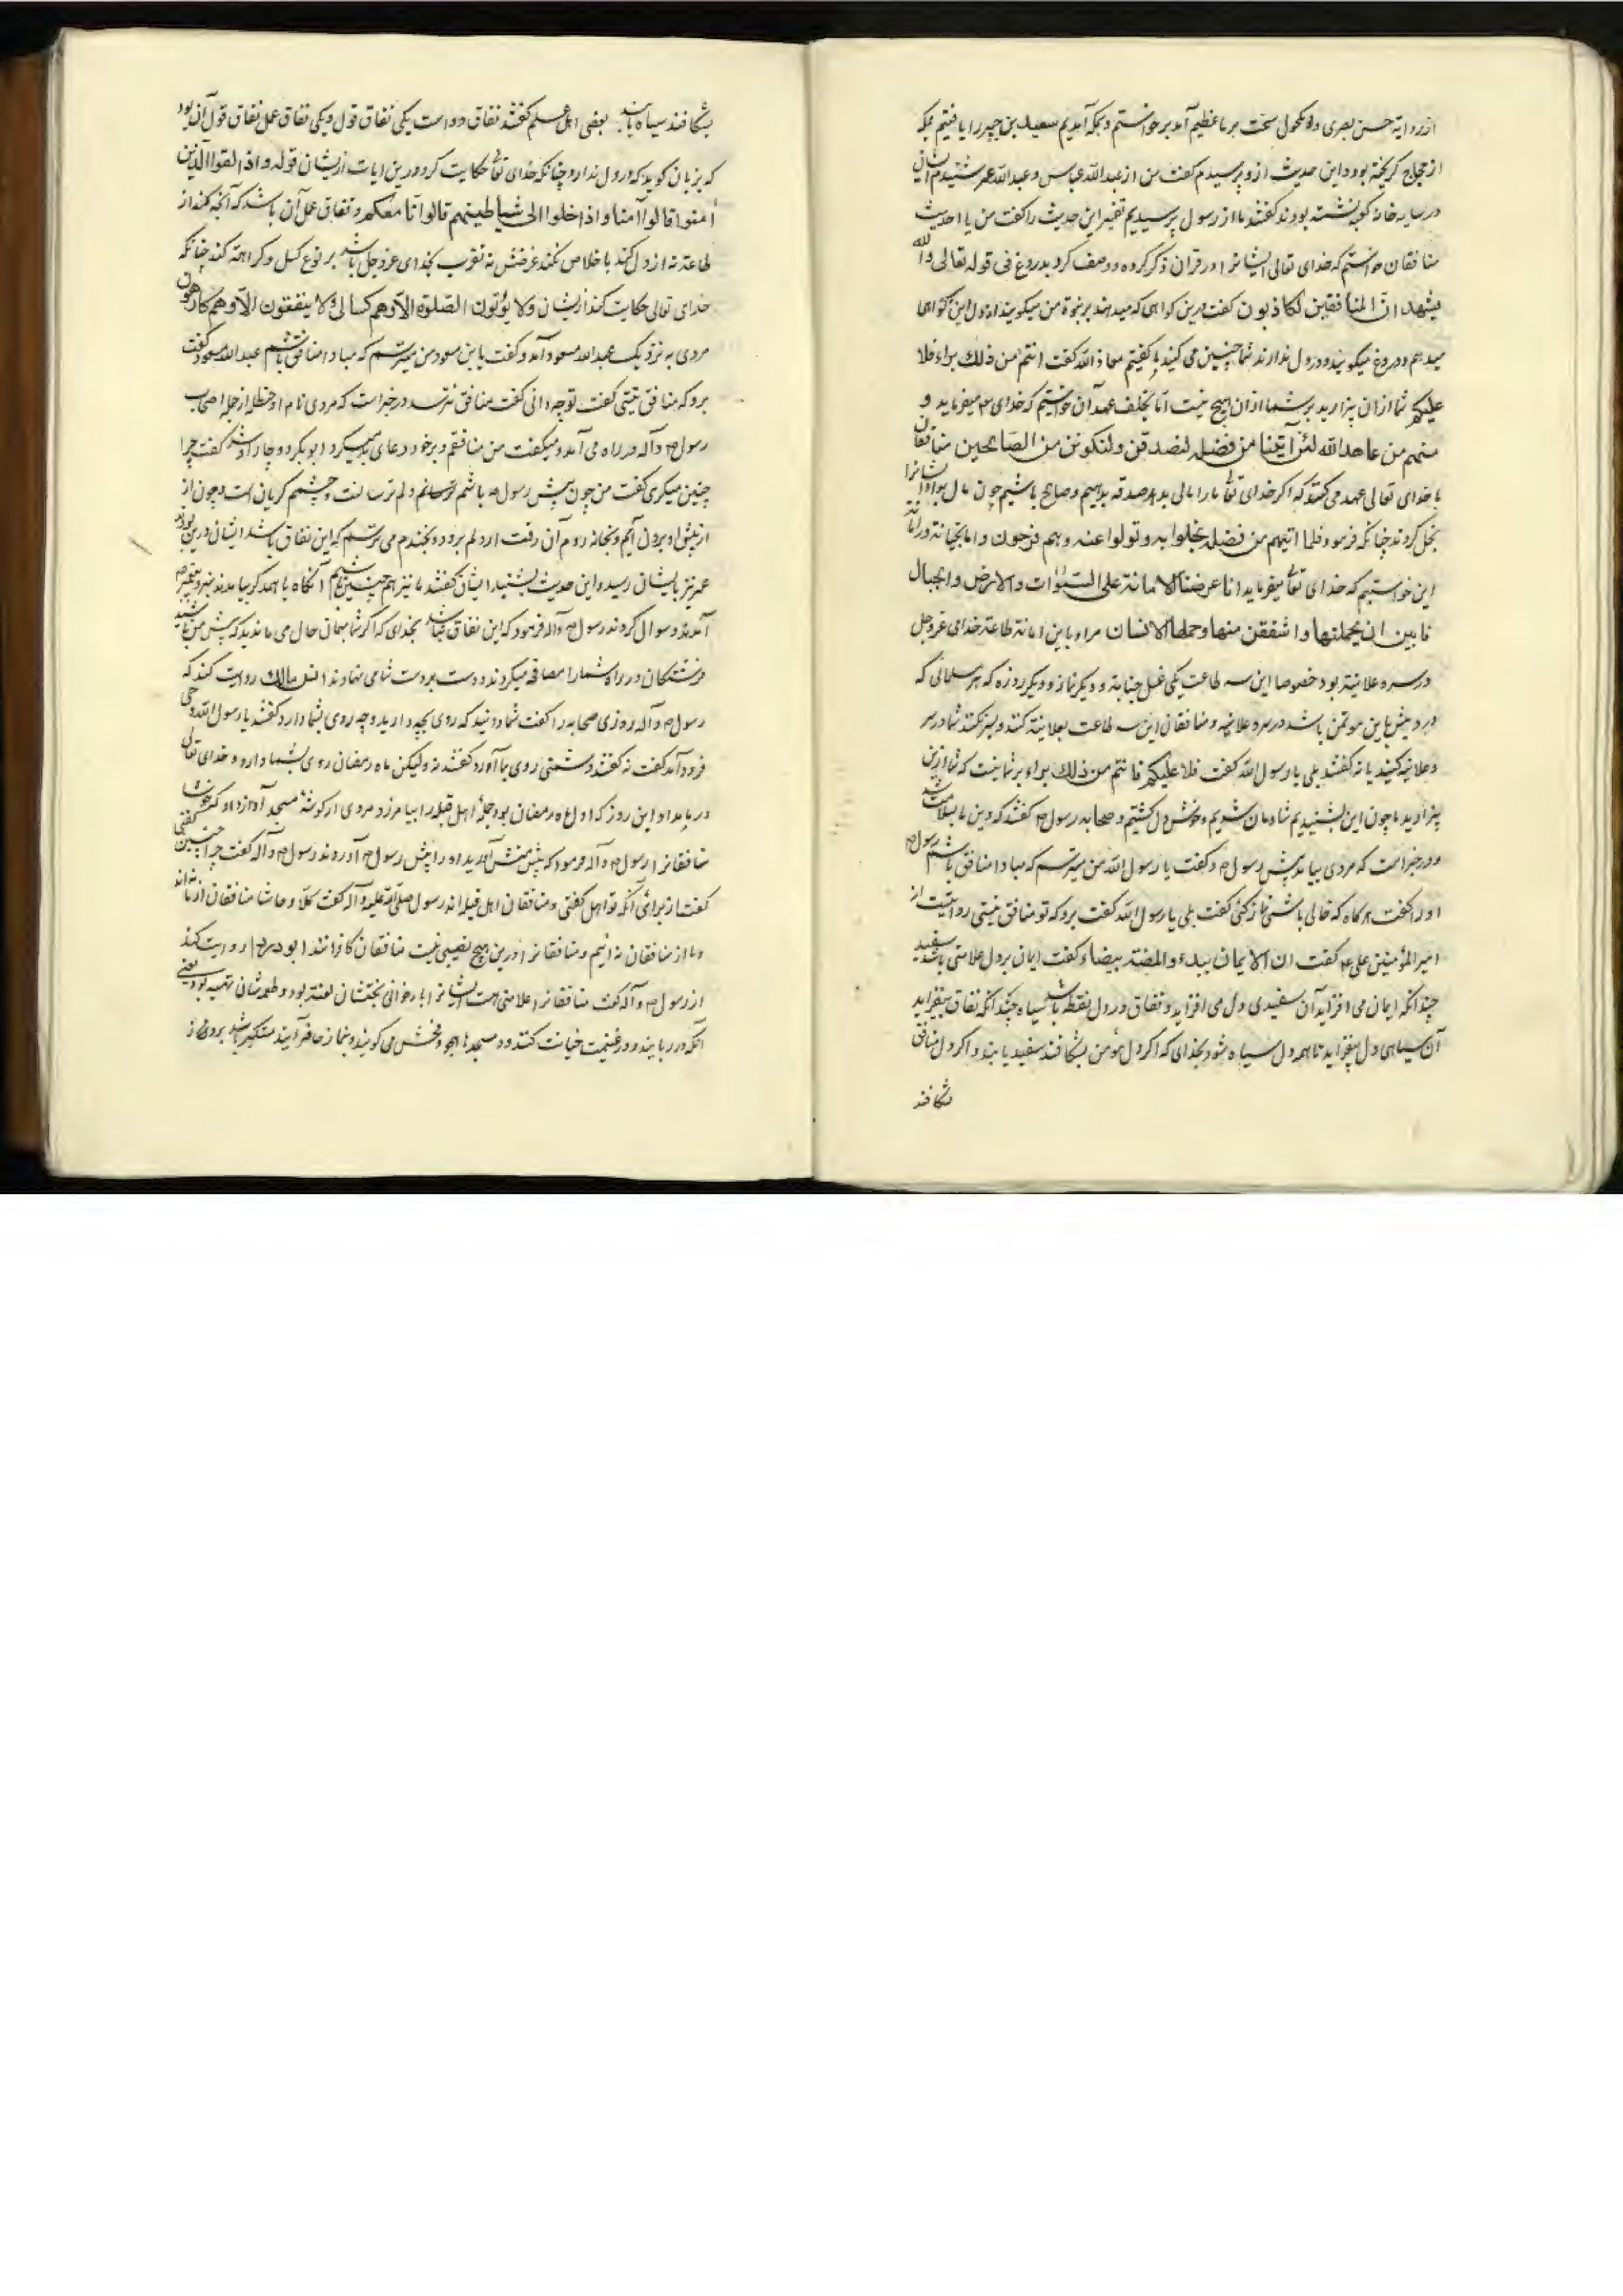 از روایة حسن بصری و مکحول سخت بر ما عظیم آمد برخواستیم و بمکه آمدیم سعید بن جبیر را یافتیم بمکه
از حجاج گریخته بود و این حدیث ازو پرسیدم گفت من از عبدالله عباس و عبدالله عمر شنیدم ایشان
در سایه خانه کعبه نشسته بودند گفتند ما از رسول پرسیدیم تفسیر این حدیث را گفت من یا احدیث
منافقان خواستم که خدای تعالی ایشانرا در قران ذکر کرده و وصف کرد بدروغ فی قوله تعالی والله
یشهد ان المنافقین لکاذبون گفت درین گواهی که میدهند بر نبوة من میگویند از دل این گواهی
میدهم و دروغ میگویند و در دل ندارند شما چنین می کنید گفتیم معاذ الله گفت انتم من ذلك براء فلا
علیکم شما ازان بیزارید بر شما ازان هیچ نیست اما بخلف عهد آن خواستم که خدای میفرماید و
منهم من عاهد الله لئن آتینا من فضله لنصدقن ولنکونن من الصالحین منافقان
با خدای تعالی عهد می کنند که اگر خدای تعالی ما را مالی بدهد صدقه بدهیم و صالح باشیم چون مال بداد ایشانرا
بخل کردند چنانکه فرمود فلما اتیهم من فضله بخلوا به وتولوا عنه وهم فرحون و اما بخیانة در امانة
این خواستیم که خدای تعالی میفرماید انا عرضنا الامانة علی السموات والارض والجبال
فابین ان یحملنها واشفقن منها وحملها الانسان مراد باین امانة طاعة خدای عزوجل
در سر و علانیة بود خصوصا این سه طاعت یکی غسل جنابة و دیگر نماز و دیگر روزه که هر مسلمانی که
درد بیش باین موتمن باشد در سر و علانیه و منافقان این سه طاعت بعلانیة کنند و بسر نکنند شما در سر
و علانیه کنید یا نه گفتند بلی یا رسول الله گفت فلا علیکم فانتم من ذلك براء بر شما نیست که شما ازین
بیزارید ما چون این بشنیدیم شادمان شدیم و خوش دل گشتیم و صحابه رسول گفتند که دین ما بسلامت شد
و در خبر است که مردی بیامد پیش رسول و گفت یا رسول الله من میترسم که مبادا منافق باشم رسول
او را گفت هرگاه که خالی باشی نماز کنی گفت بلی یا رسول الله گفت برو که تو منافق نیستی روایتست از
امیر المؤمنین علی ع گفت ان الایمان یبدء والمضنة بیضاء گفت ایمان بر دل علامتی باشد سفید
چندانکه ایمان می افزاید آن سفیدی دل می افزاید و نفاق در دل نقطه باشد سیاه چندانکه نفاق بیفزاید
آن سیاهی دل بیفزاید تا همه دل سیاه شود بخدای که اگر دل مومن بشکافند سفید یابند و اگر دل منافق
بشکافند
بشکافند سیاه باشد بعضی اهل علم گفتند نفاق دو است یکی نفاق قول و یکی نفاق عمل نفاق قول آن بود
که بزبان گوید که در دل ندارد چنانکه خدای تعالی حکایت کرد درین ایات ازیشان قوله واذا لقوا الذین
امنوا قالوا آمنا واذا خلوا الی شیاطینهم قالوا انا معکم و نفاق عمل آن باشد که آنچه کند از
طاعة نه از دل کند با خلاص نکند غرضش نه تقرب بخدای عزوجل باشد بر نوع کسل و کراهة کند چنانکه
خدای تعالی حکایت کند ازیشان ولا یؤتون الصلوة الا وهم کسالی ولا ینفقون الا وهم کارهون
مردی به نزدیک عبدالله مسعود آمد و گفت یابن مسعود من میترسم که مبادا منافق باشم عبدالله مسعود گفت
برو که منافق نیستی گفت تو چه دانی گفت منافق نترسد در خبر است که مردی نام او حنظله از جمله اصحاب
رسول ص و آله در راه می آمد و میگفت من منافقم و بر خود دعای بد میکرد ابوبکر دوچار او شد گفت چرا
چنین میکری گفت من چون پیش رسول باشم ترسانم و دلم ترسانست و چشمم گریان است و چون از
از پیش او برون آیم و بخانه روم آن رقت از دلم برود و بخندم می ترسم که این نفاق باشد ایشان درین بودند
عمر نیز بایشان رسید و این حدیث بشنید ایشان گفتند ما نیز هم چنین باشیم آنگاه با همدگر بیامدند بنزد پیغمبر
آمدند و سوال کردند رسول ص و آله فرمود که این نفاق نباشد بخدای که اگر شما بهمان حال می ماندید که پیش من باشید
فرشتگان در راه شما را مصافحه میکردند و دست بر دست شما می نهادند انس مالك روایت کند که
رسول ص و آله روزی صحابه را گفت شما دانید که روی بچه دارید و چه روی بشما دارد گفتند یا رسول الله وحی
فرود آمد گفت نه گفتند دشمنی روی بما آورد گفتند نه ولیکن ماه رمضان روی بشما دارد و خدای تعالی
در بامداد این روز که اول ماه رمضان بود جملهٔ اهل قبله را بیامرزد مردی از گوشهٔ مسجد آواز داد که خوشا
منافقانرا رسول ص و آله فرمود که پیش منش آورید او را پیش رسول آوردند رسول ص و آله گفت چرا چنین گفتی
گفت از برای آنکه تو اهل گفتی و منافقان اهل قبله اند رسول صلی الله علیه و آله گفت کلا و حاشا منافقان از ما نه اند
و ما از منافقان نه ایم و منافقانرا درین هیچ نصیبی نیست منافقان کافرانند ابو روایت کند
از رسول ص و آله گفت منافقانرا علامتی هست ایشانرا با خوانی تحیتشان لعنة بود و طعمه شان تهمه بود یعنی
آنکه در ربایند و در غنیمت خیانت کنند و در مسجدها هجر و فحش می گویند و بنماز حاضر آیند متکبر باشد